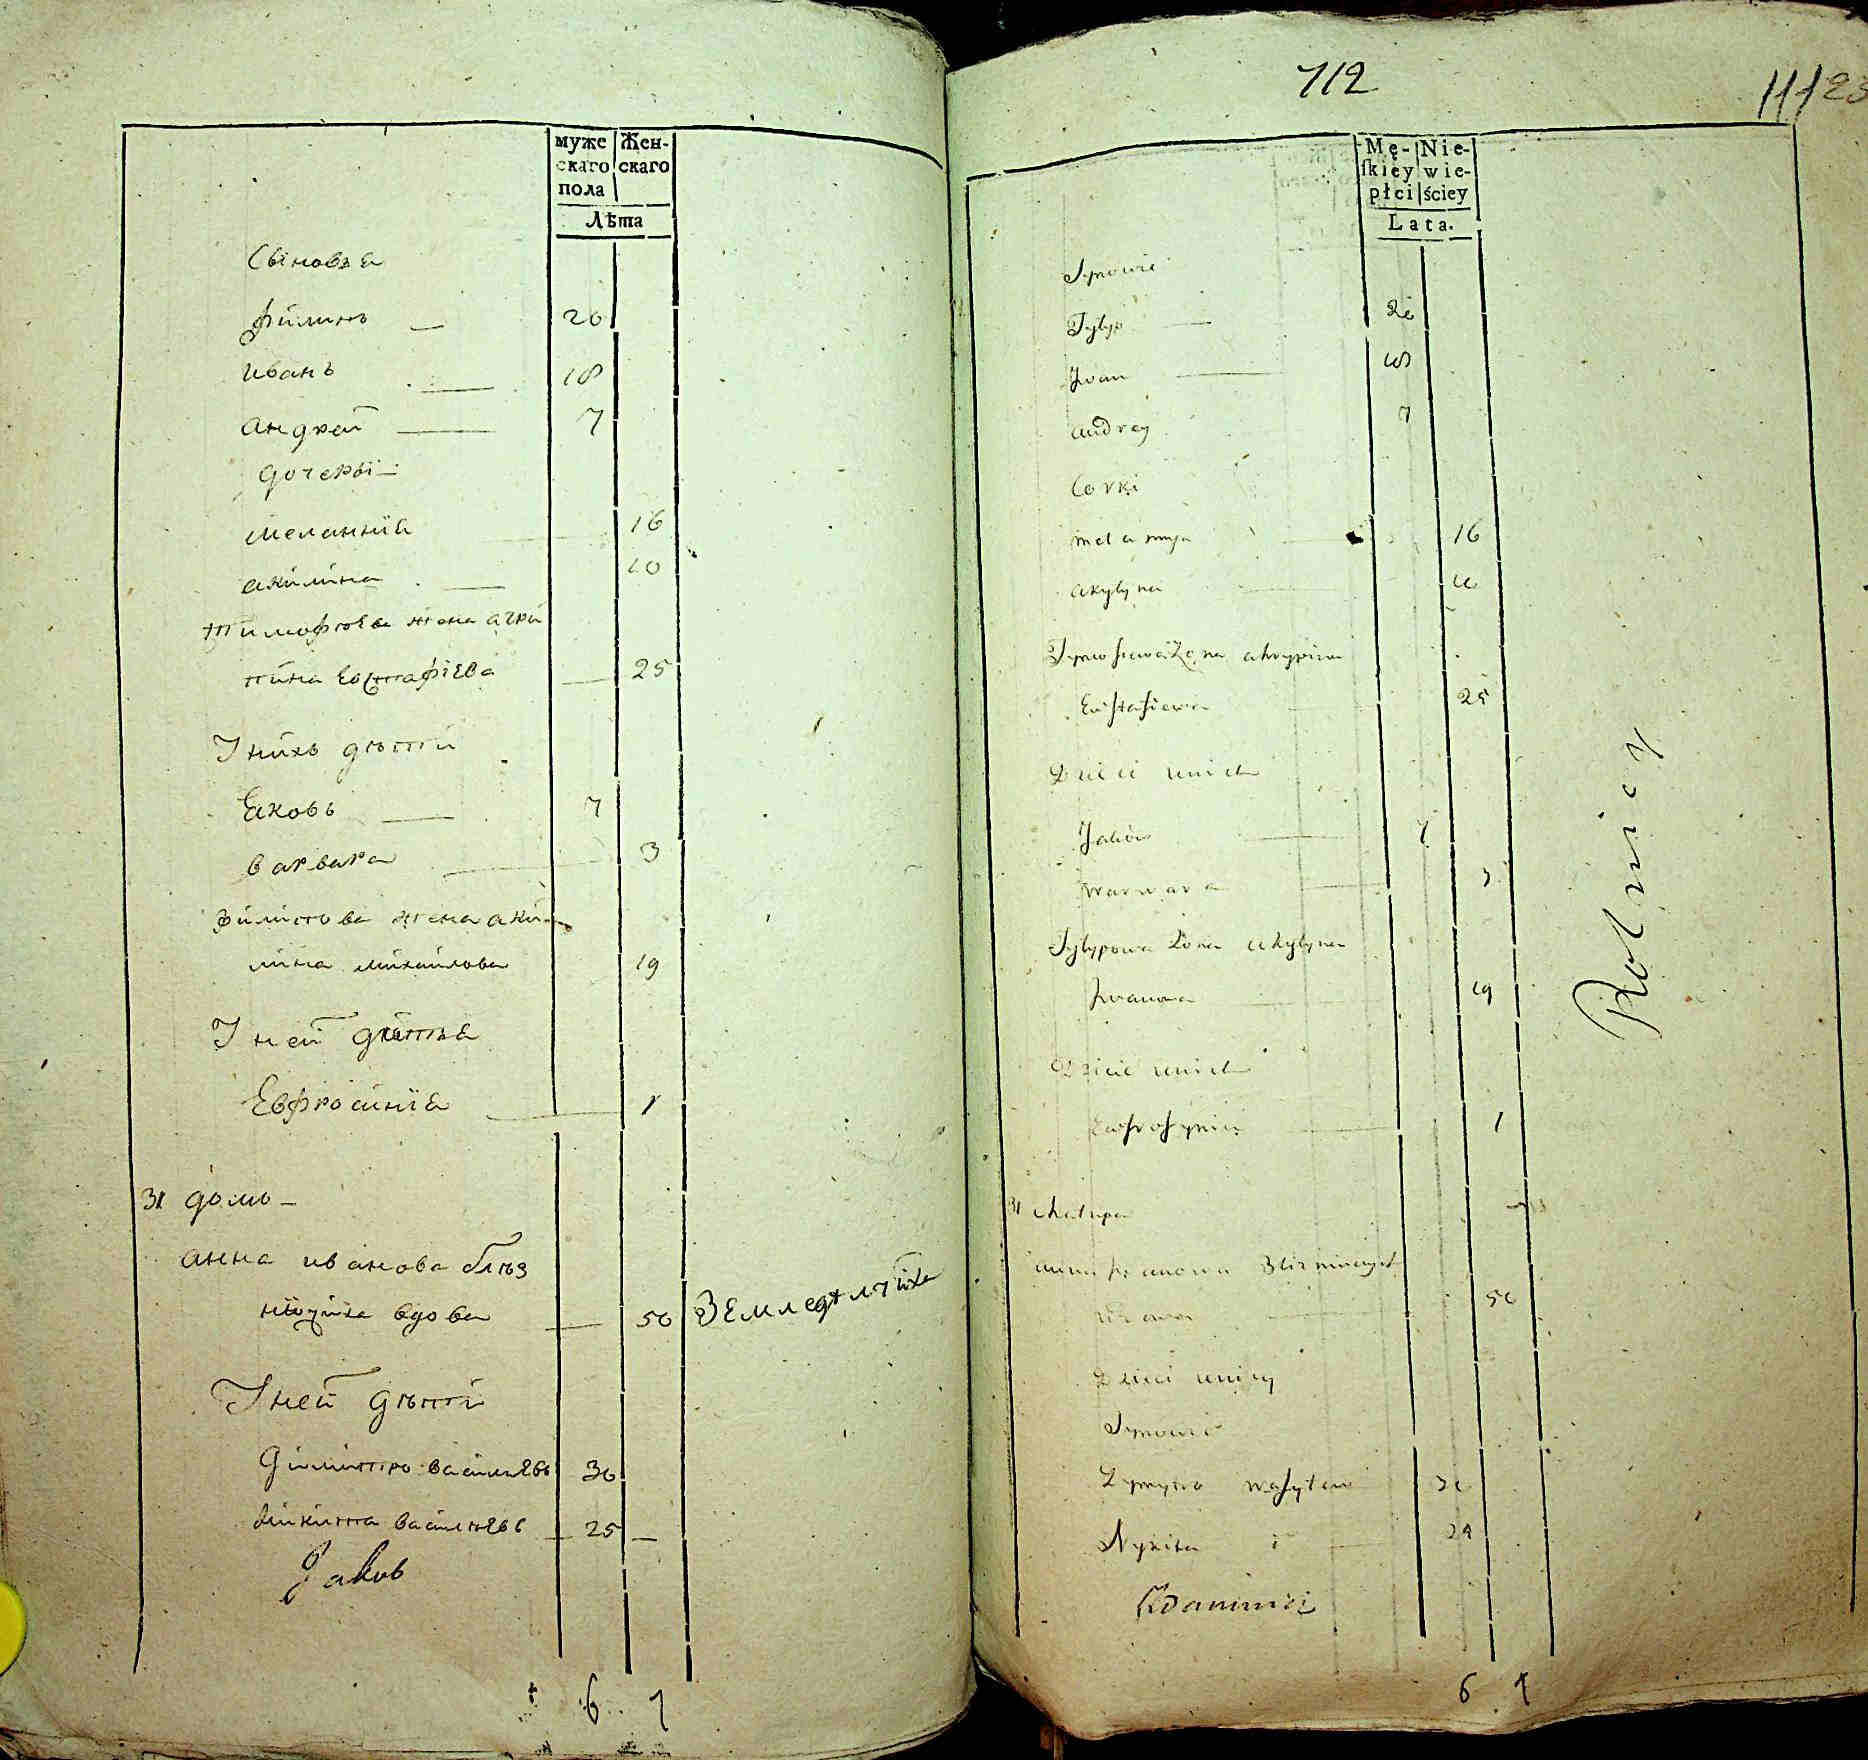 муже Жен-
скаго скаго
пола
Лѣта
Сыновья
Филипъ 20
иванъ 18
андрей 7
дочеры
меланнїа 16
акилина 10
тимофѣева жена агри
пина Евстафіева 25
У нихъ дѣти
Еаковъ 7
варвара 3
Филипова жена аки
лина михайлова 19
У ней дѣтье
Евфросинїа 1
31 домъ
анна иванова
вдова 50 Земледѣлчиха
У ней дѣти
Димитро васильевъ 30
Микита васильевъ 25
Jakub
6 7
712
23
Mę- Nie-
skiey wie-
płci ściey
Lata.
Synowie
Fylyp 20
Iwan 18
andrey 7
Corki
melannya 16
akylyna 10
Tymofiewa Żona ahrypina
Eustafiewa 25
Dzieci unich
Jakow 7
warwara 3
Fylypowa żona akylyna
Iwanowa 19
Dziecie unich
Ewfrosynia 1
31 chałupa
anna Iwanowa
wdowa 50
Dzieci uniey
Synowie
Dymytro wasylew 30
Nykita 25
Rolnicy
6 7